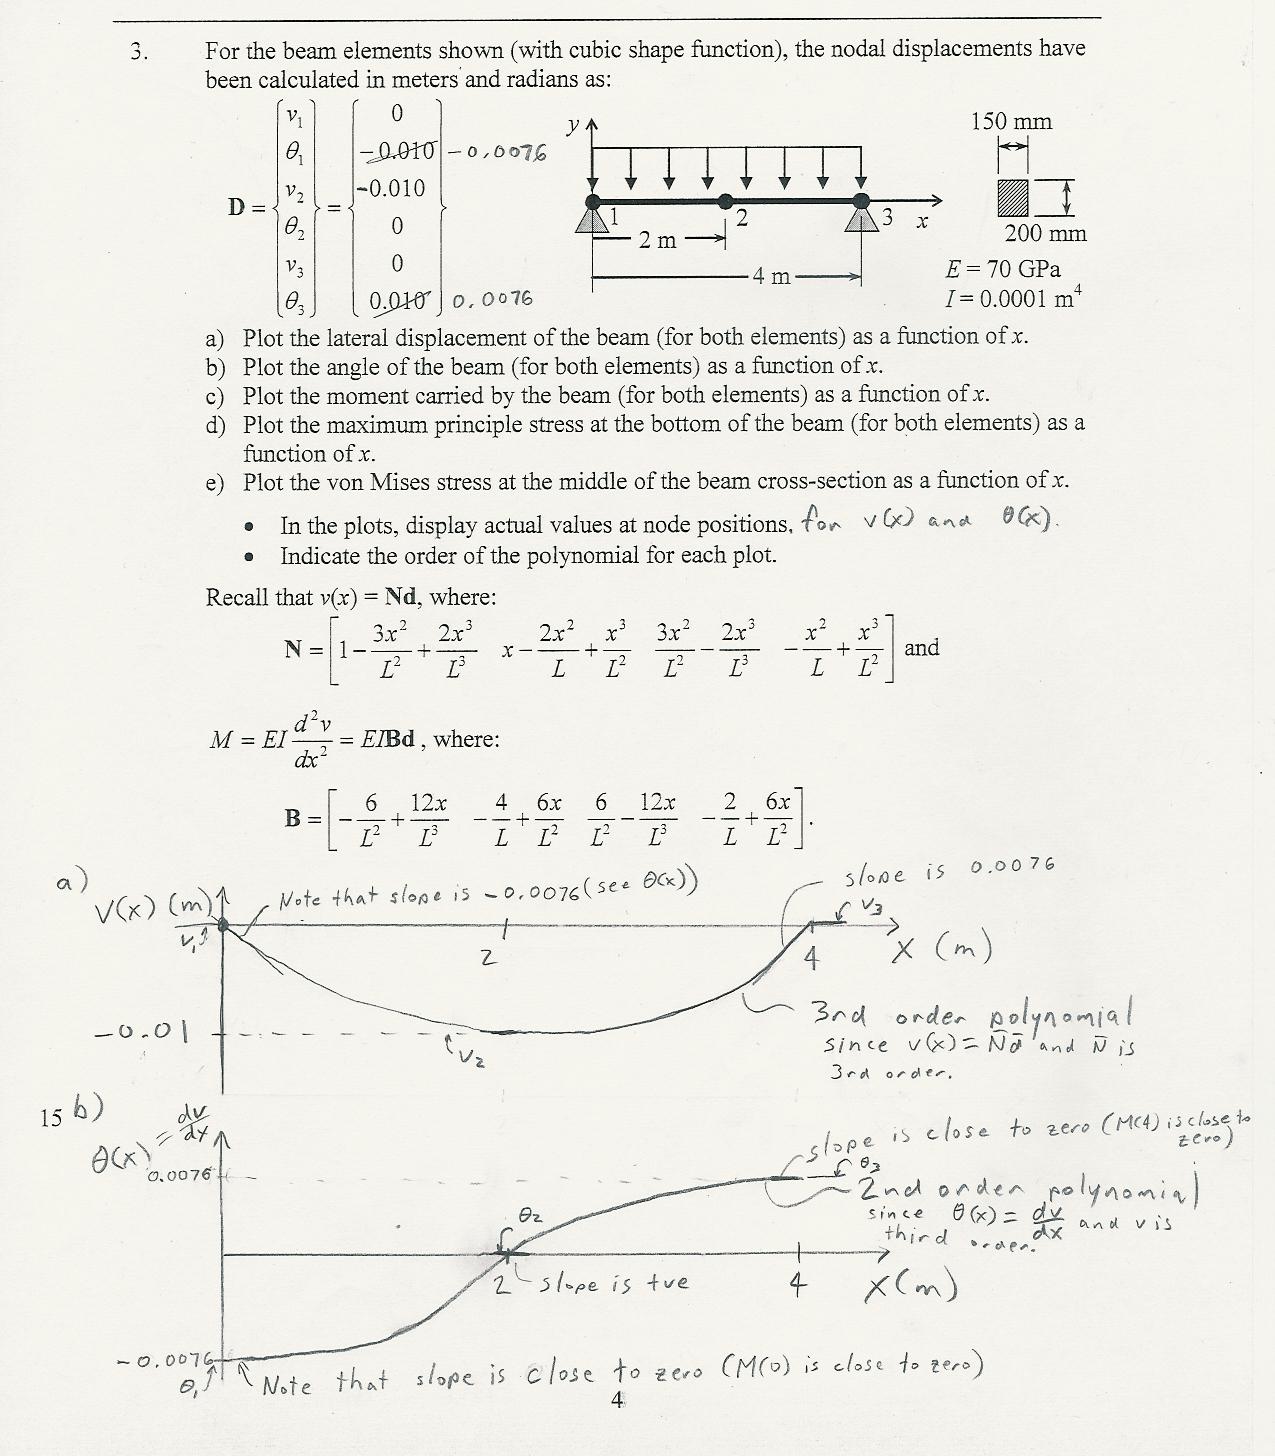 3. For the beam elements shown (with cubic shape function), the nodal displacements have
been calculated in meters and radians as:
D = { v₁ θ₁ v₂ θ₂ v₃ θ₃ } = { 0 -0.010 -0.010 0 0 0.010 }
-0.0076
0.0076
y
1 2 3 x
2 m
4 m
150 mm
200 mm
E = 70 GPa
I = 0.0001 m⁴
a) Plot the lateral displacement of the beam (for both elements) as a function of x.
b) Plot the angle of the beam (for both elements) as a function of x.
c) Plot the moment carried by the beam (for both elements) as a function of x.
d) Plot the maximum principle stress at the bottom of the beam (for both elements) as a
function of x.
e) Plot the von Mises stress at the middle of the beam cross-section as a function of x.
• In the plots, display actual values at node positions, for v(x) and θ(x).
• Indicate the order of the polynomial for each plot.
Recall that v(x) = Nd, where:
N = [ 1 - 3x²/L² + 2x³/L³   x - 2x²/L + x³/L²   3x²/L² - 2x³/L³   - x²/L + x³/L² ] and
M = EI d²v/dx² = EIBd , where:
B = [ - 6/L² + 12x/L³   - 4/L + 6x/L²   6/L² - 12x/L³   - 2/L + 6x/L² ].
a)
V(x) (m)
Note that slope is -0.0076 (see θ(x))
slope is 0.0076
v₁
v₃
2
4
X (m)
-0.01
v₂
3rd order polynomial
since v(x) = N̄d̄ and N̄ is
3rd order.
15 b)
θ(x) = dv/dx
0.0076
slope is close to zero (M(4) is close to
zero)
θ₃
2nd order polynomial
since θ(x) = dv/dx and v is
third order.
θ₂
2
slope is +ve
4
X (m)
-0.0076
θ₁
Note that slope is close to zero (M(0) is close to zero)
4